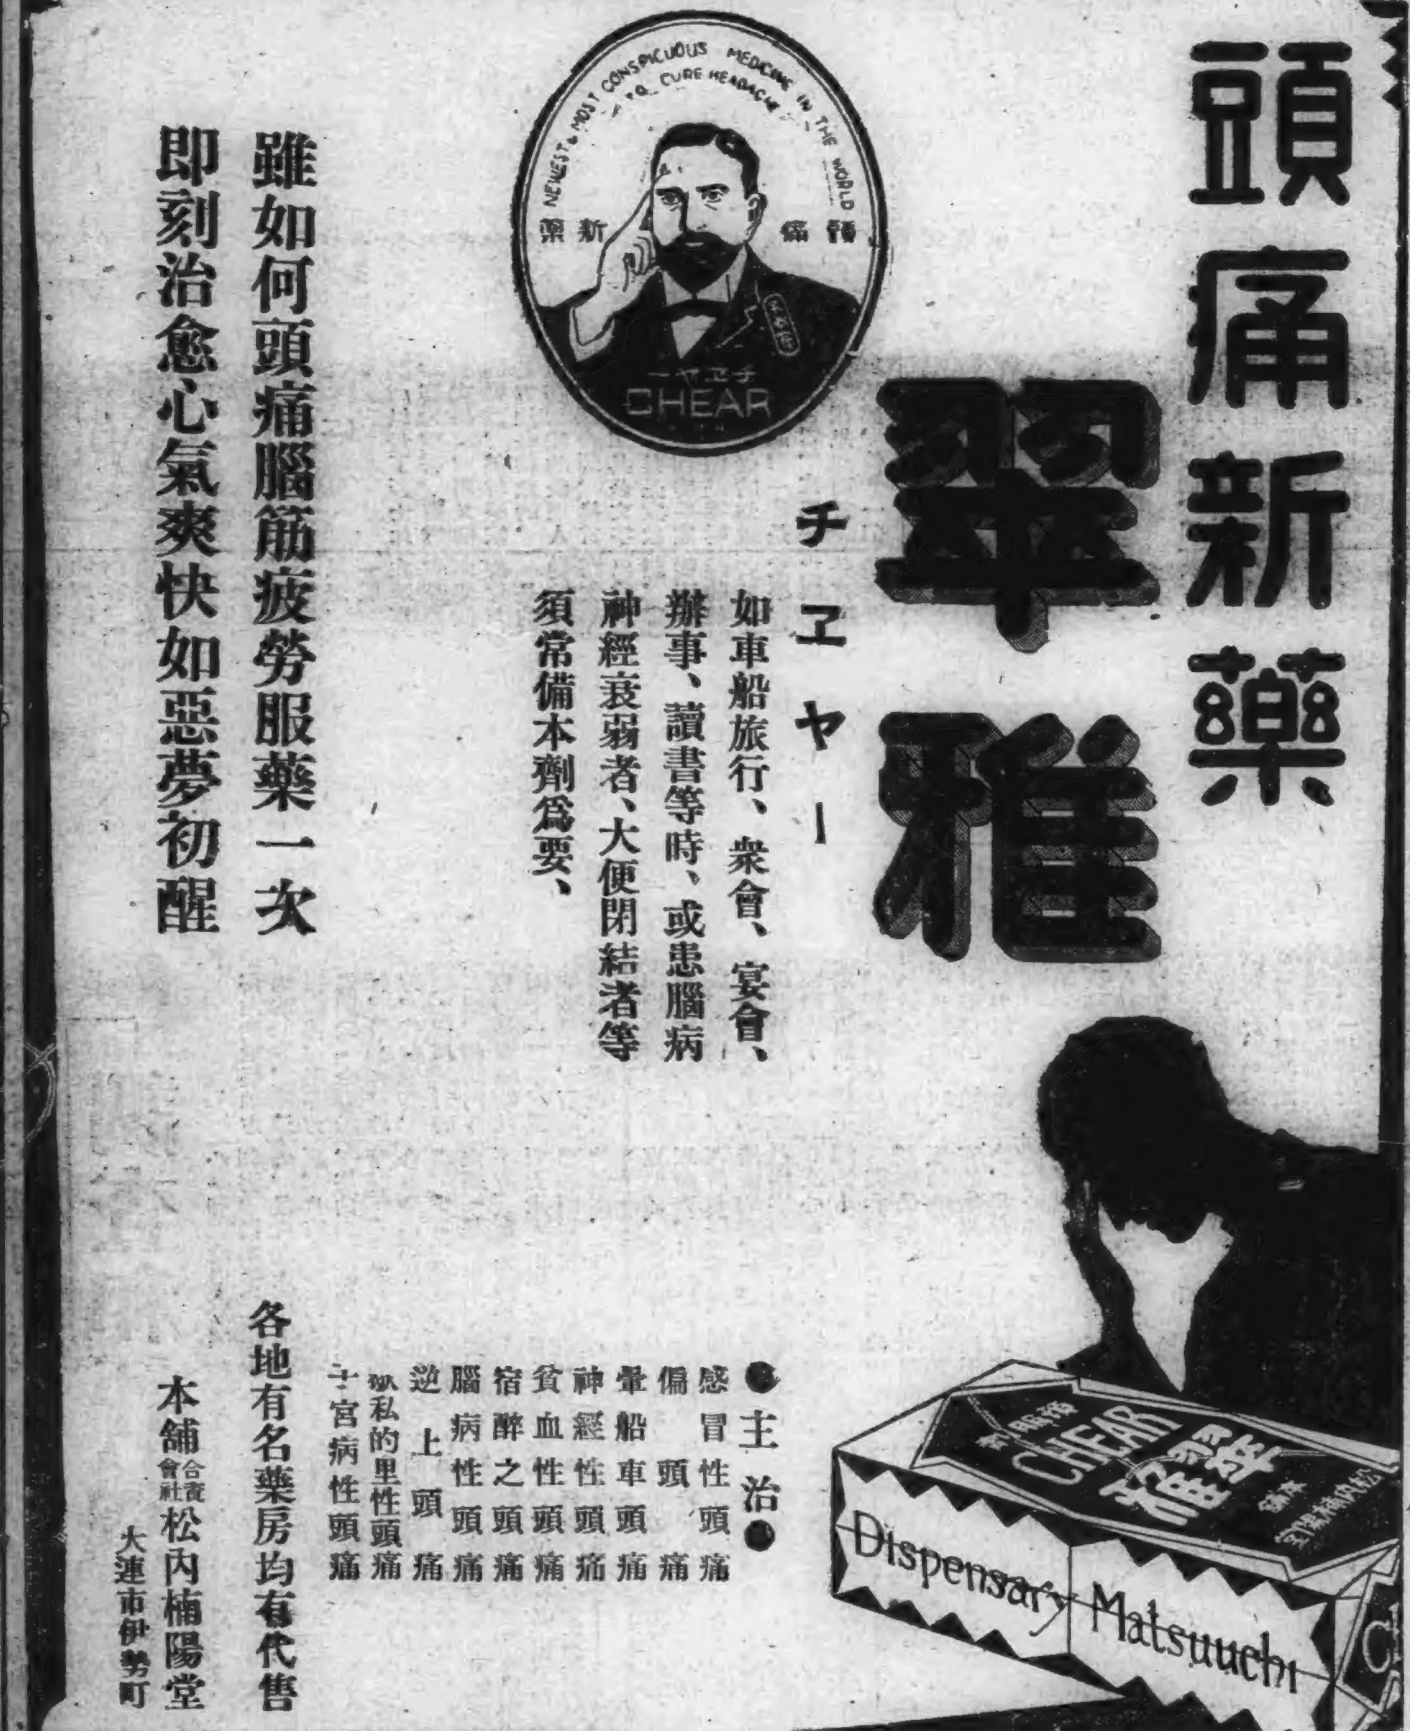 頭痛新藥
翠雅
チヱヤー
NEWEST & MOST CONSPICUOUS MEDICINE IN THE WORLD
TO CURE HEADACHE
頭痛 新藥
チヱヤー
CHEAR
如車船旅行、衆會、宴會、
辦事、讀書等時、或患腦病
神經衰弱者、大便閉結者等
須常備本劑爲要、
雖如何頭痛腦筋疲勞服藥一次
即刻治愈心氣爽快如惡夢初醒
●主治●
感冒性頭痛
偏頭痛
暈船車頭痛
神經性頭痛
貧血性頭痛
宿醉之頭痛
腦病性頭痛
逆上頭痛
歇私的里性頭痛
子宮病性頭痛
各地有名藥房均有代售
本舖 合資會社 松內楠陽堂
大連市伊勢町
CHEAR
翠雅
Dispensary Matsuuchi